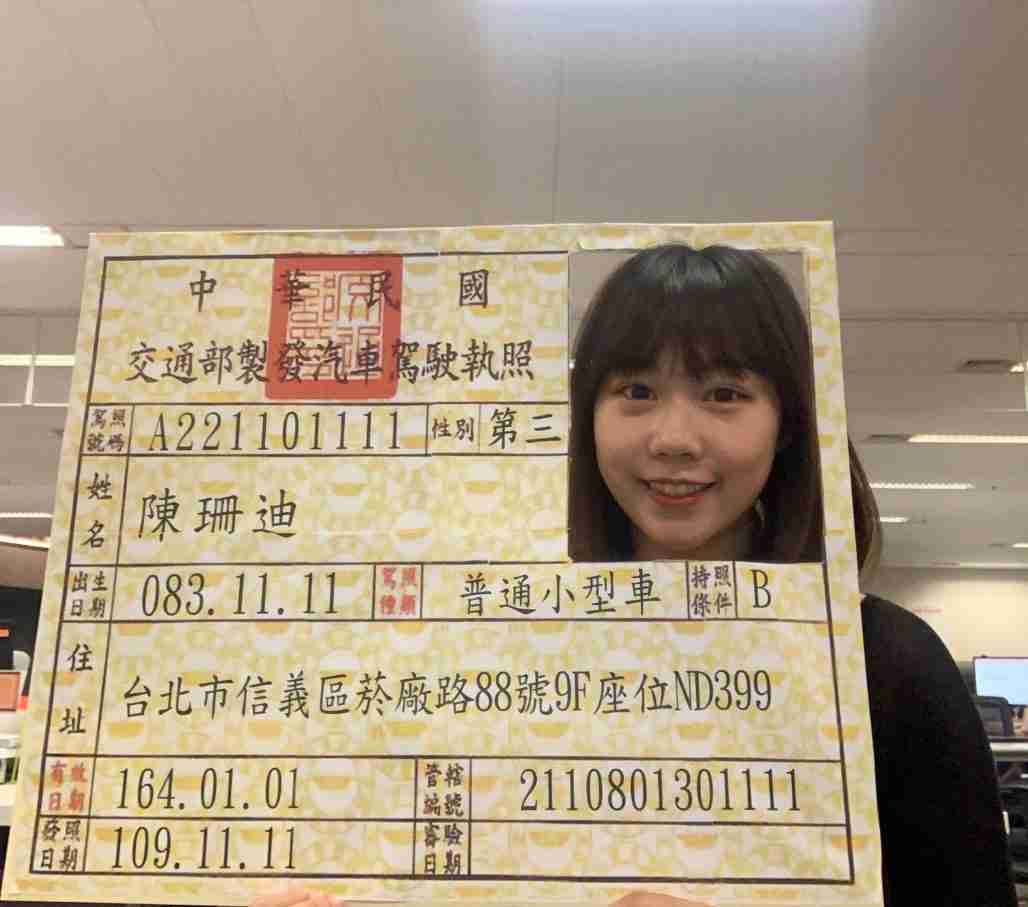 中華民國
交通部製發汽車駕駛執照
駕照號碼 A221101111 性別 第三
姓名 陳珊迪
出生日期 083.11.11 駕照種類 普通小型車 持照條件 B
住址 台北市信義區菸廠路88號9F座位ND399
有效日期 164.01.01 管轄編號 2110801301111
發照日期 109.11.11 審驗日期